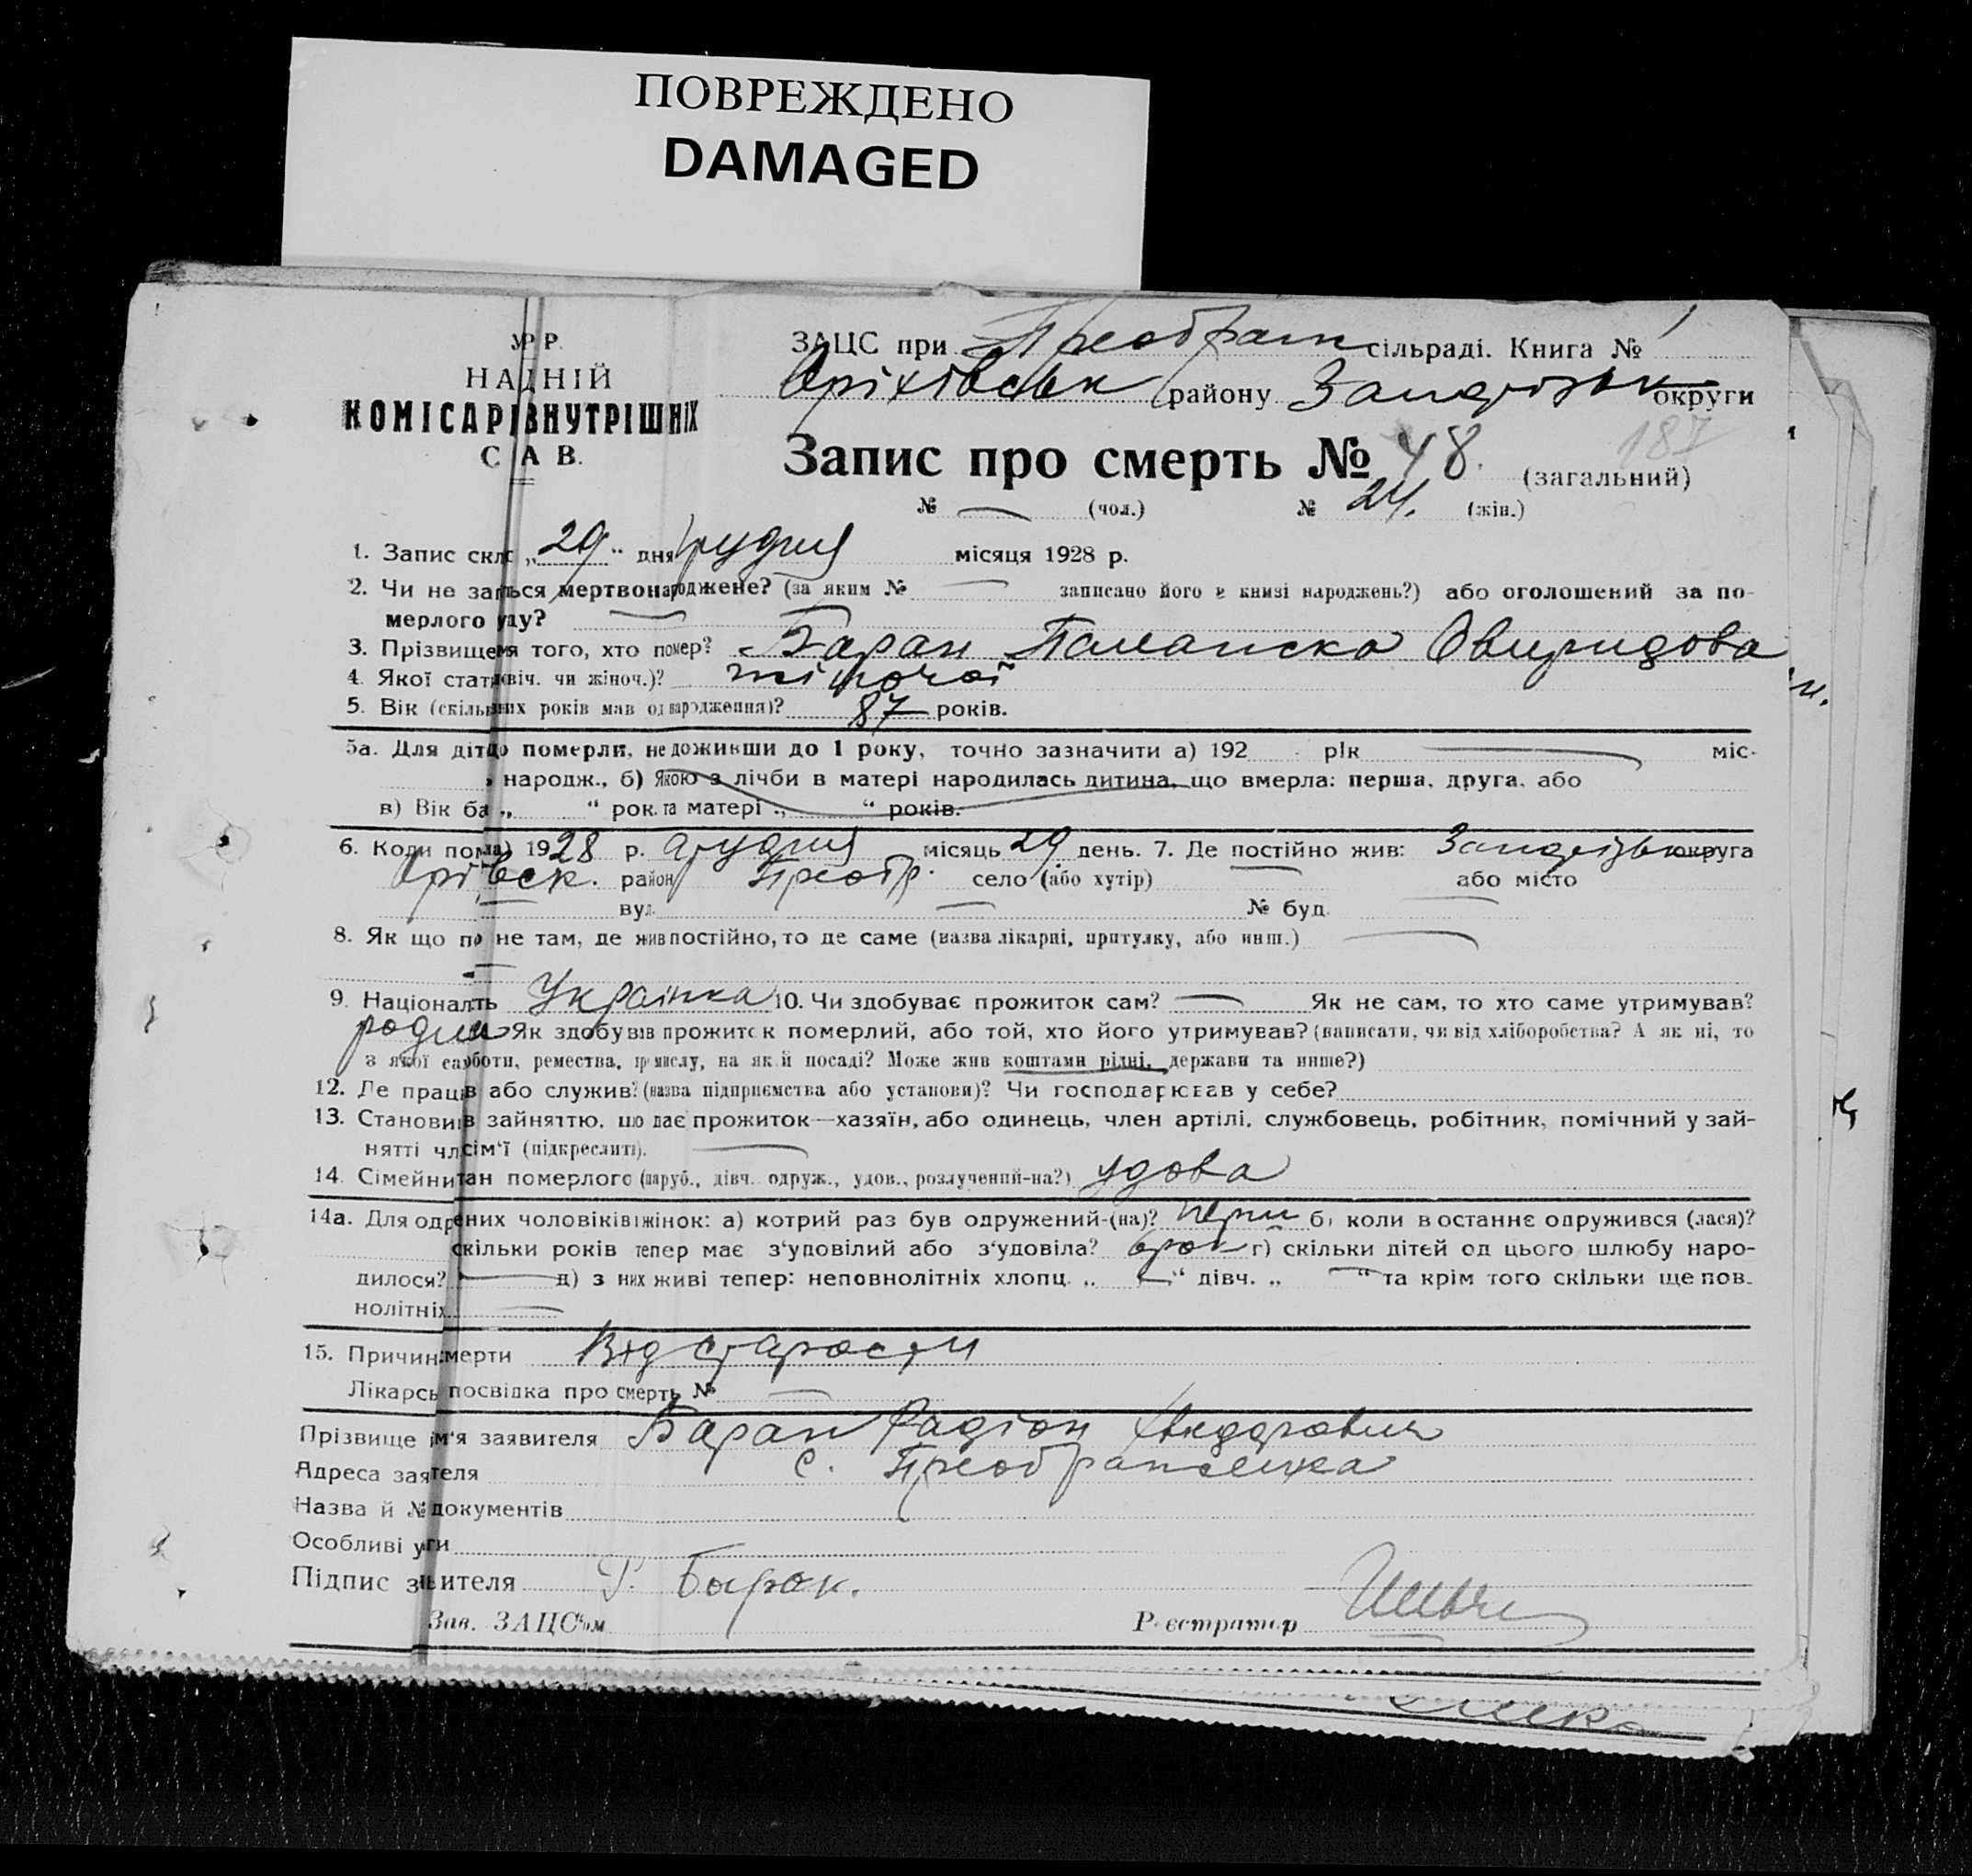 ПОВРЕЖДЕНО
DAMAGED
ЗАЦС при Преображ сільраді. Книга № 1
Оріхівськ району Запорізьк округи
НА НІЙ
КОМІСАР ВНУТРІШНІХ
С А В.
Запис про смерть № 48. (загальний) 187
№ — (чол.) № 24. (жін.)
1. Запис скл „29“ дня грудня місяця 1928 р.
2. Чи не за ься мертвонароджене? (за яким № — записано його в книзі народжень?) або оголошений за по-
мерлого ду? —
3. Прізвище м'я того, хто помер? Баран Свиридова
4. Якої стат віч. чи жіноч.)? жіночої
5. Вік (скільк их років мав од народження)? 87 років.
5а. Для діт о померли, не доживши до 1 року, точно зазначити а) 192 рік — міс-
народж., б) Якою з лічби в матері народилась дитина, що вмерла: перша, друга, або
в) Вік ба „ “ рок. та матері „ “ років.
6. Коли пом а) 1928 р. грудня місяць 29 день. 7. Де постійно жив: Запорізьк округа
Орі вськ. район Преобр. село (або хутір) або місто —
— вул. — № буд.
8. Як що по не там, де жив постійно, то де саме (назва лікарні, притулку, або инш.) —
9. Національ ть Українка 10. Чи здобуває прожиток сам? — Як не сам, то хто саме утримував?
родня Як здобував прожиток померлий, або той, хто його утримував? (написати, чи від хліборобства? А як ні, то
з якої са роботи, ремества, промислу, на якій посаді? Може жив коштами рідні, держави та инше?)
12. Де прац в або служив? (назва підприємства або установи)? Чи господарював у себе?
13. Станови в зайняттю, що дає прожиток—хазяїн, або одинець, член артілі, службовець, робітник, помічний у зай-
нятті чл сім'ї (підкреслить). —
14. Сімейни тан померлого (паруб., дівч. одруж., удов., розлучений-на?) удова
14а. Для одр ених чоловіків і жінок: а) котрий раз був одружений-(на)? перш б) коли в останнє одружився (лася)?
скільки років тепер має з'уповілий або з'удовіла? г) скільки дітей од цього шлюбу наро-
дилося? — д) з них живі тепер: неповнолітніх хлопц. „ — “ дівч. „ — “ та крім того скільки ще пов-
нолітніх —
15. Причин мерти Від старости
Лікарсь посвідка про смерть № —
Прізвище ім'я заявителя Баран Радіон Хведорович
Адреса зая теля с. Преображенка
Назва й № документів
Особливі у ги
Підпис з вителя Р. Баран.
Зав. ЗАЦС'ом Реєстратор